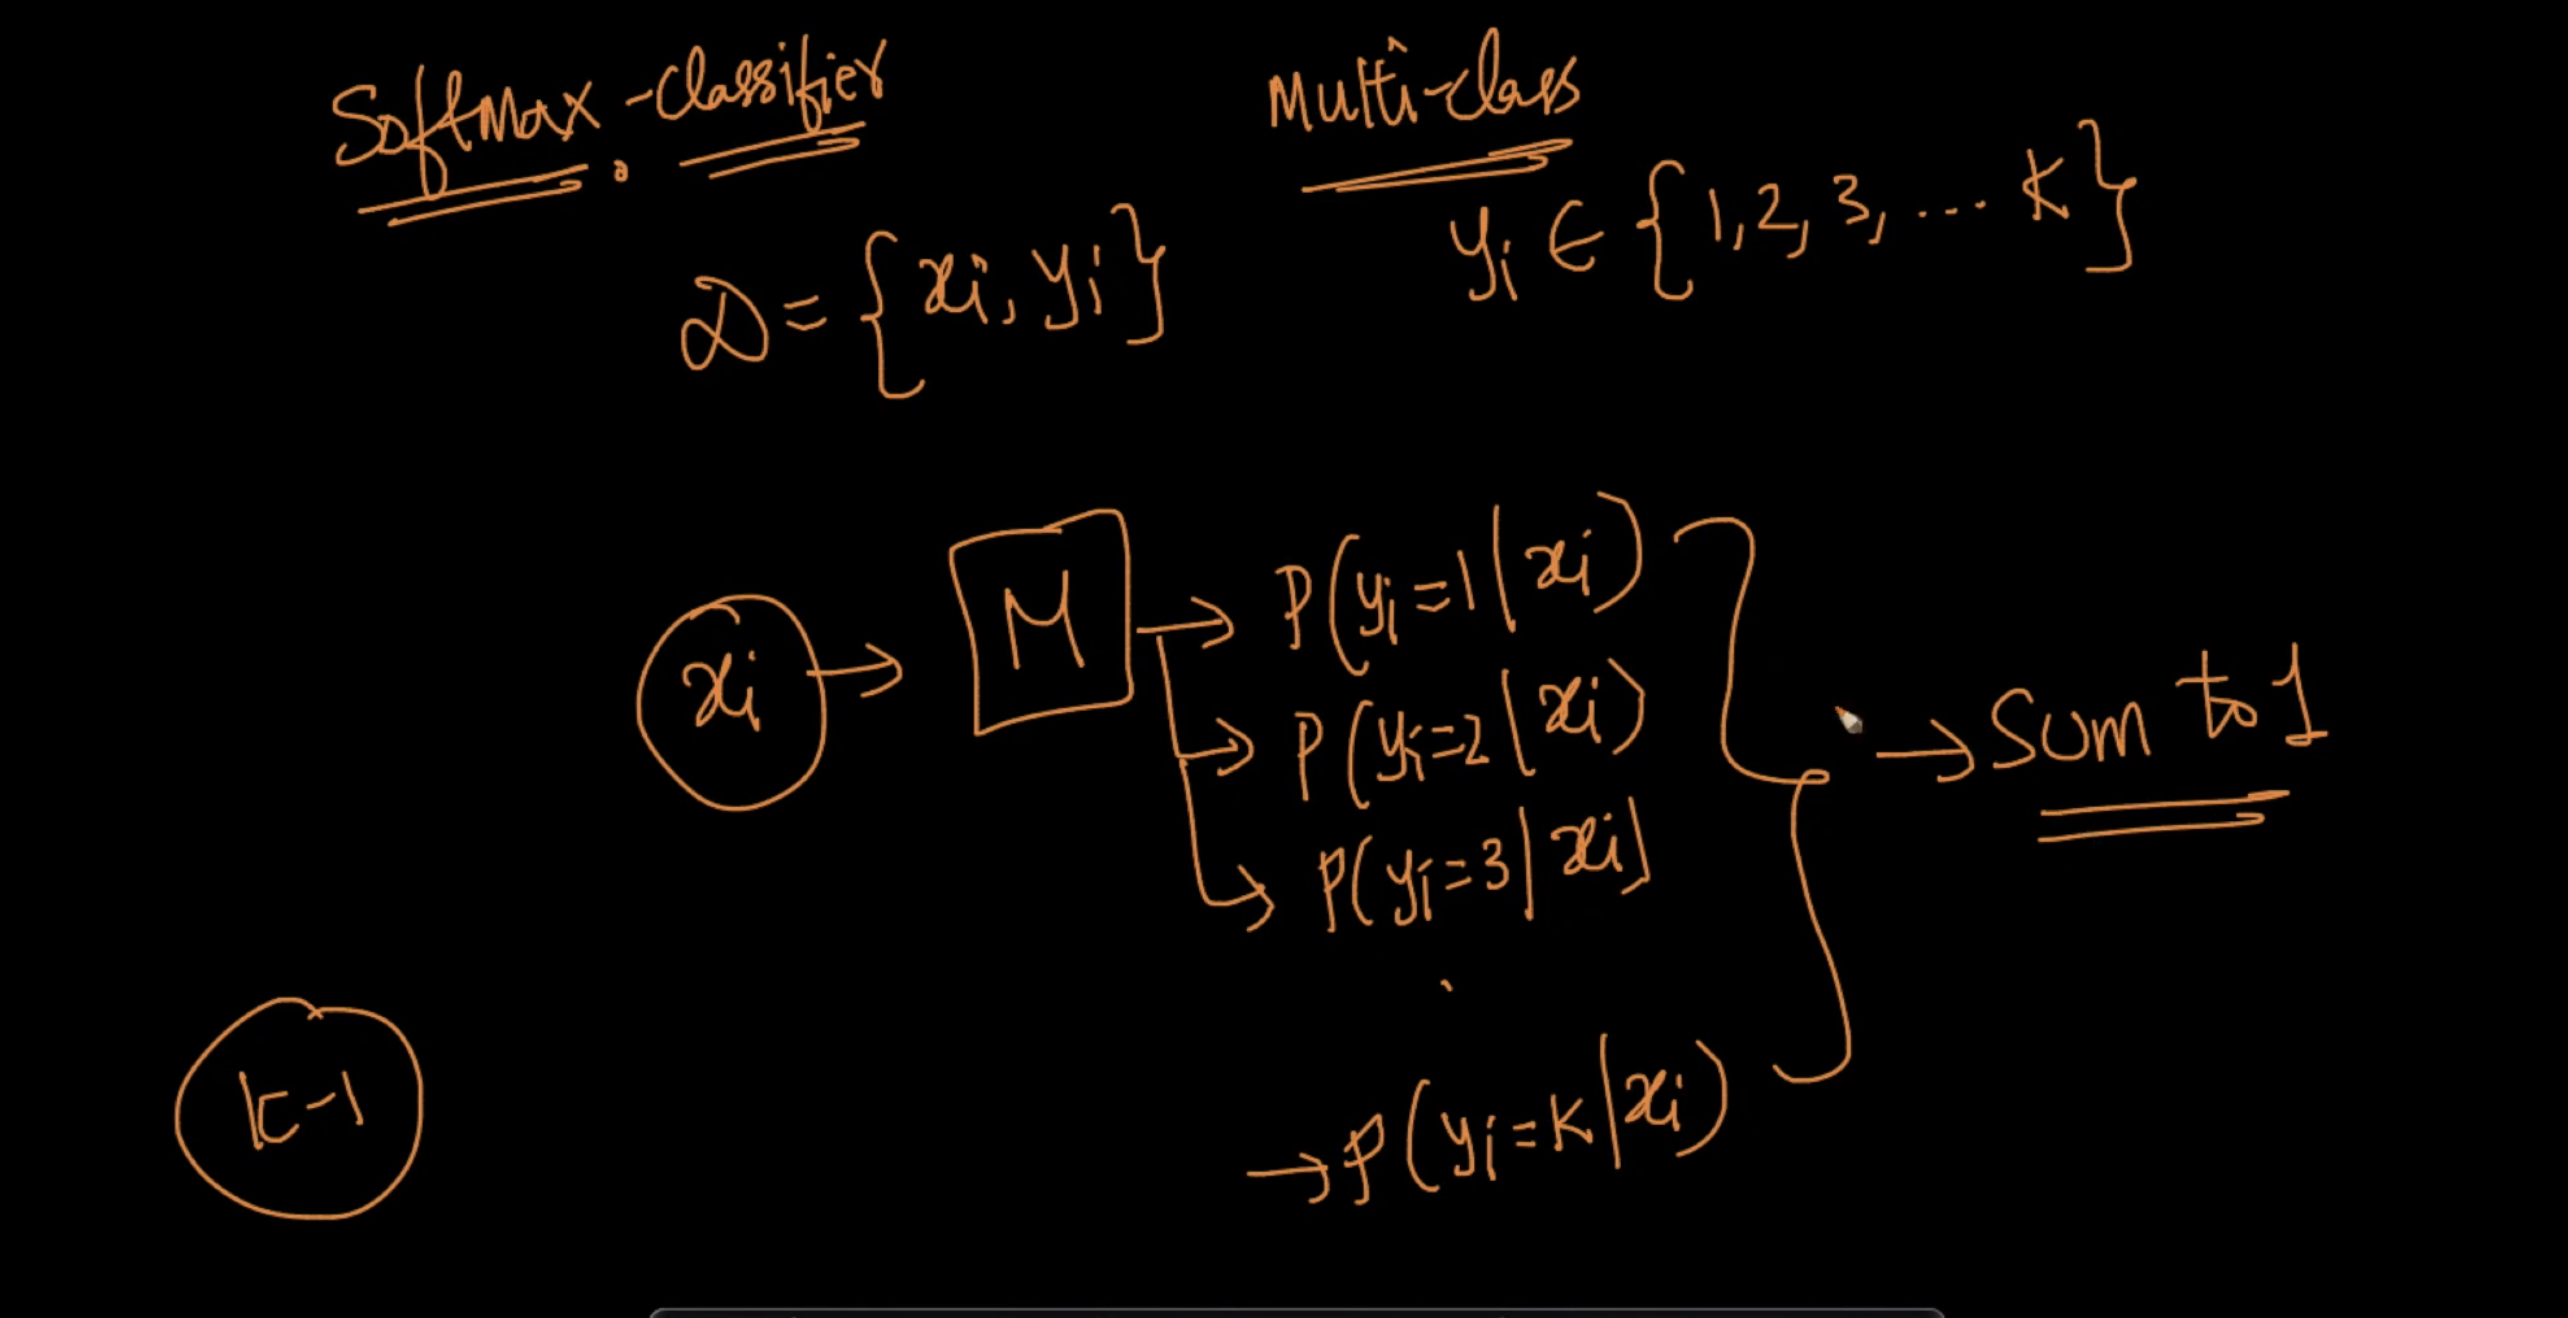 SoftMax-classifier
Multi-class
D = {xi, yi}
yi ∈ {1,2,3,... K}
xi → M → P(yi=1|xi)
→ P(yi=2|xi)
→ P(yi=3|xi)
→ P(yi=K|xi)
→ Sum to 1
K-1